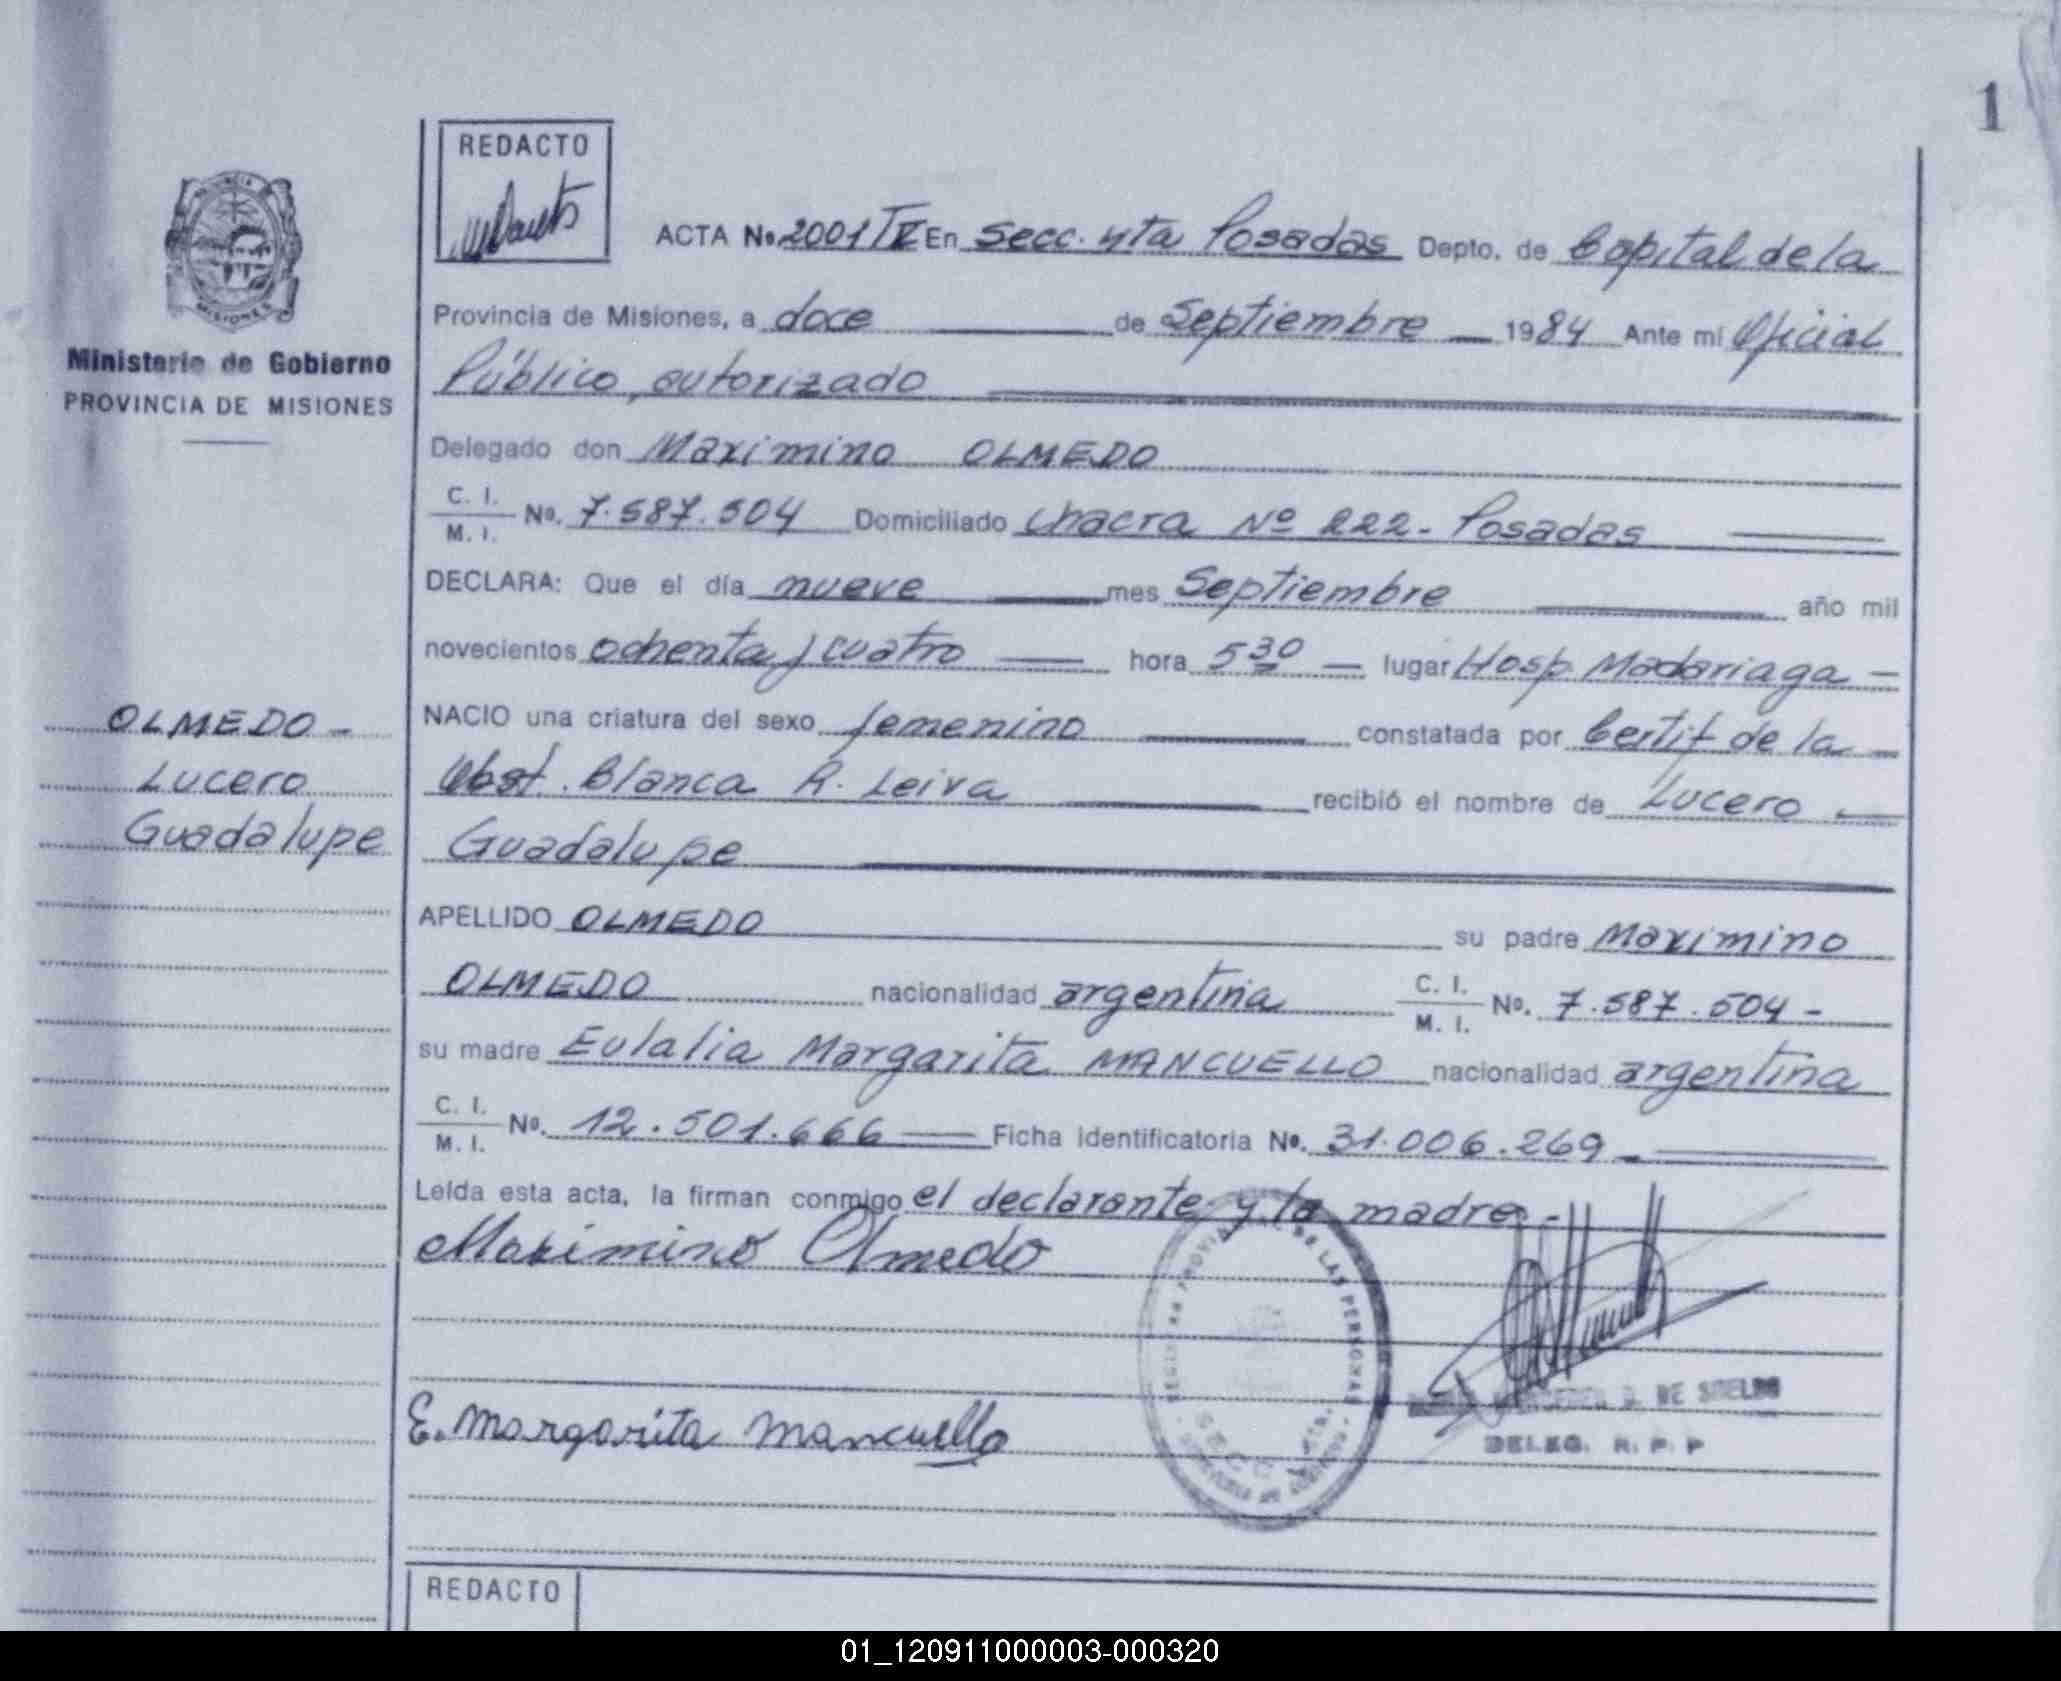 1
REDACTO
ACTA No. 2001 IV En Secc. 4ta Posadas Depto. de Capital de la
Provincia de Misiones, a doce de Septiembre 1984 Ante mí Oficial
Público, autorizado
Ministerio de Gobierno
PROVINCIA DE MISIONES
MISIONES
Delegado don Maximino OLMEDO
C. I.
M. I. No. 7.587.504 Domiciliado Chacra Nº 222- Posadas
DECLARA: Que el día nueve mes Septiembre año mil
novecientos ochenta y cuatro hora 5 30 lugar Hosp. Madariaga
OLMEDO -
Lucero
Guadalupe
NACIO una criatura del sexo femenino constatada por Certif de la
Obst. Blanca R. Leiva recibió el nombre de Lucero
Guadalupe
APELLIDO OLMEDO su padre Maximino
OLMEDO nacionalidad argentina C. I.
M. I. No. 7.587.504 -
su madre Eulalia Margarita MANCUELLO nacionalidad argentina
C. I.
M. I. No. 12.501.666 Ficha identificatoria No. 31.006.269
Leída esta acta, la firman conmigo el declarante y la madre.-
Maximino Olmedo
DE LAS PERSONAS
SECC
DE SOELDO
DELEG. R. P. P
E. Margarita Mancuello
REDACTO
01_120911000003-000320